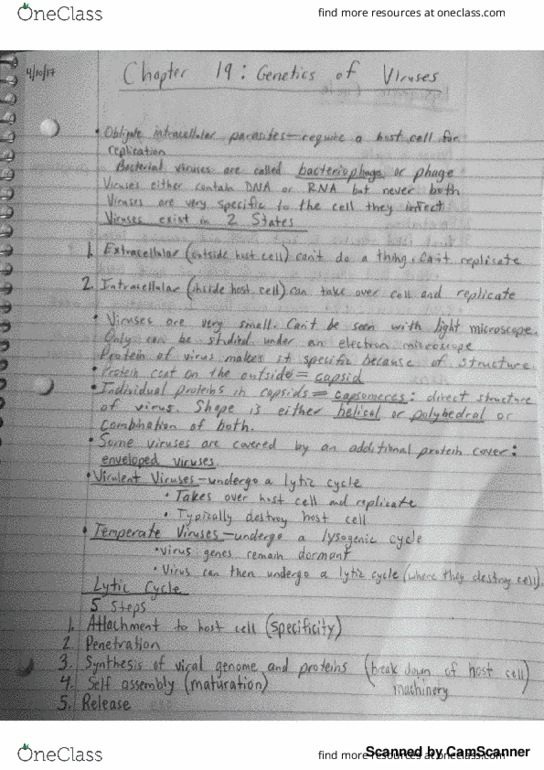 OneClass
find more resources at oneclass.com
4/10/17
Chapter 19: Genetics of Viruses
• Obligate intracellular parasites - require a host cell for
replication
Bacterial viruses are called bacteriophage or phage
Viruses either contain DNA or RNA but never both
Viruses are very specific to the cell they infect
Viruses exist in 2 States
1. Extracellular (outside host cell) can't do a thing. Can't replicate
2. Intracellular (inside host cell) can take over cell and replicate
• Viruses are very small. Can't be seen with light microscope.
Only can be studied under an electron microscope
Protein of virus makes it specific because of structure.
• Protein coat on the outside = capsid
• Individual proteins in capsids = capsomeres: direct structure
of virus. Shape is either helical or polyhedral or
combination of both.
• Some viruses are covered by an additional protein cover:
enveloped viruses.
• Virulent Viruses - undergo a lytic cycle
• Takes over host cell and replicate
• Typically destroy host cell
• Temperate Viruses - undergo a lysogenic cycle
• virus genes remain dormant
• Virus can then undergo a lytic cycle (where they destroy cell).
Lytic Cycle
5 Steps
1. Attachment to host cell (specificity)
2. Penetration
3. Synthesis of viral genome and proteins (break down of host cell
machinery)
4. Self assembly (maturation)
5. Release
OneClass
find more resources at oneclass.com
Scanned by CamScanner